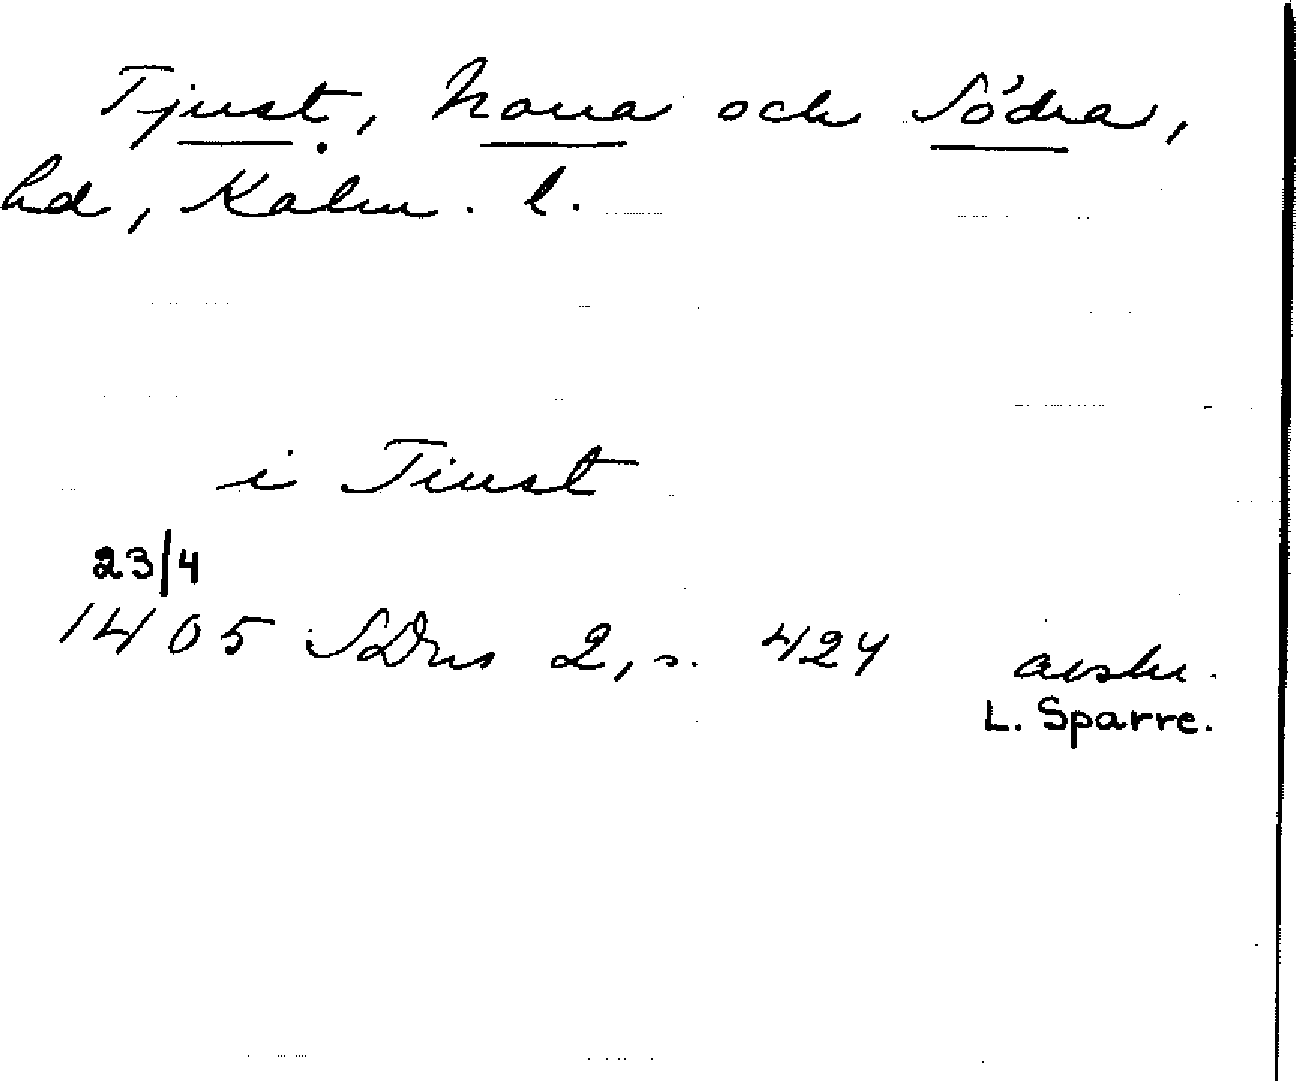 Tjust, Norra och Södra,
hd, Kalm. l.
i Tiust
23/4
1405 SDns 2, s. 424 avskr.
L. Sparre.